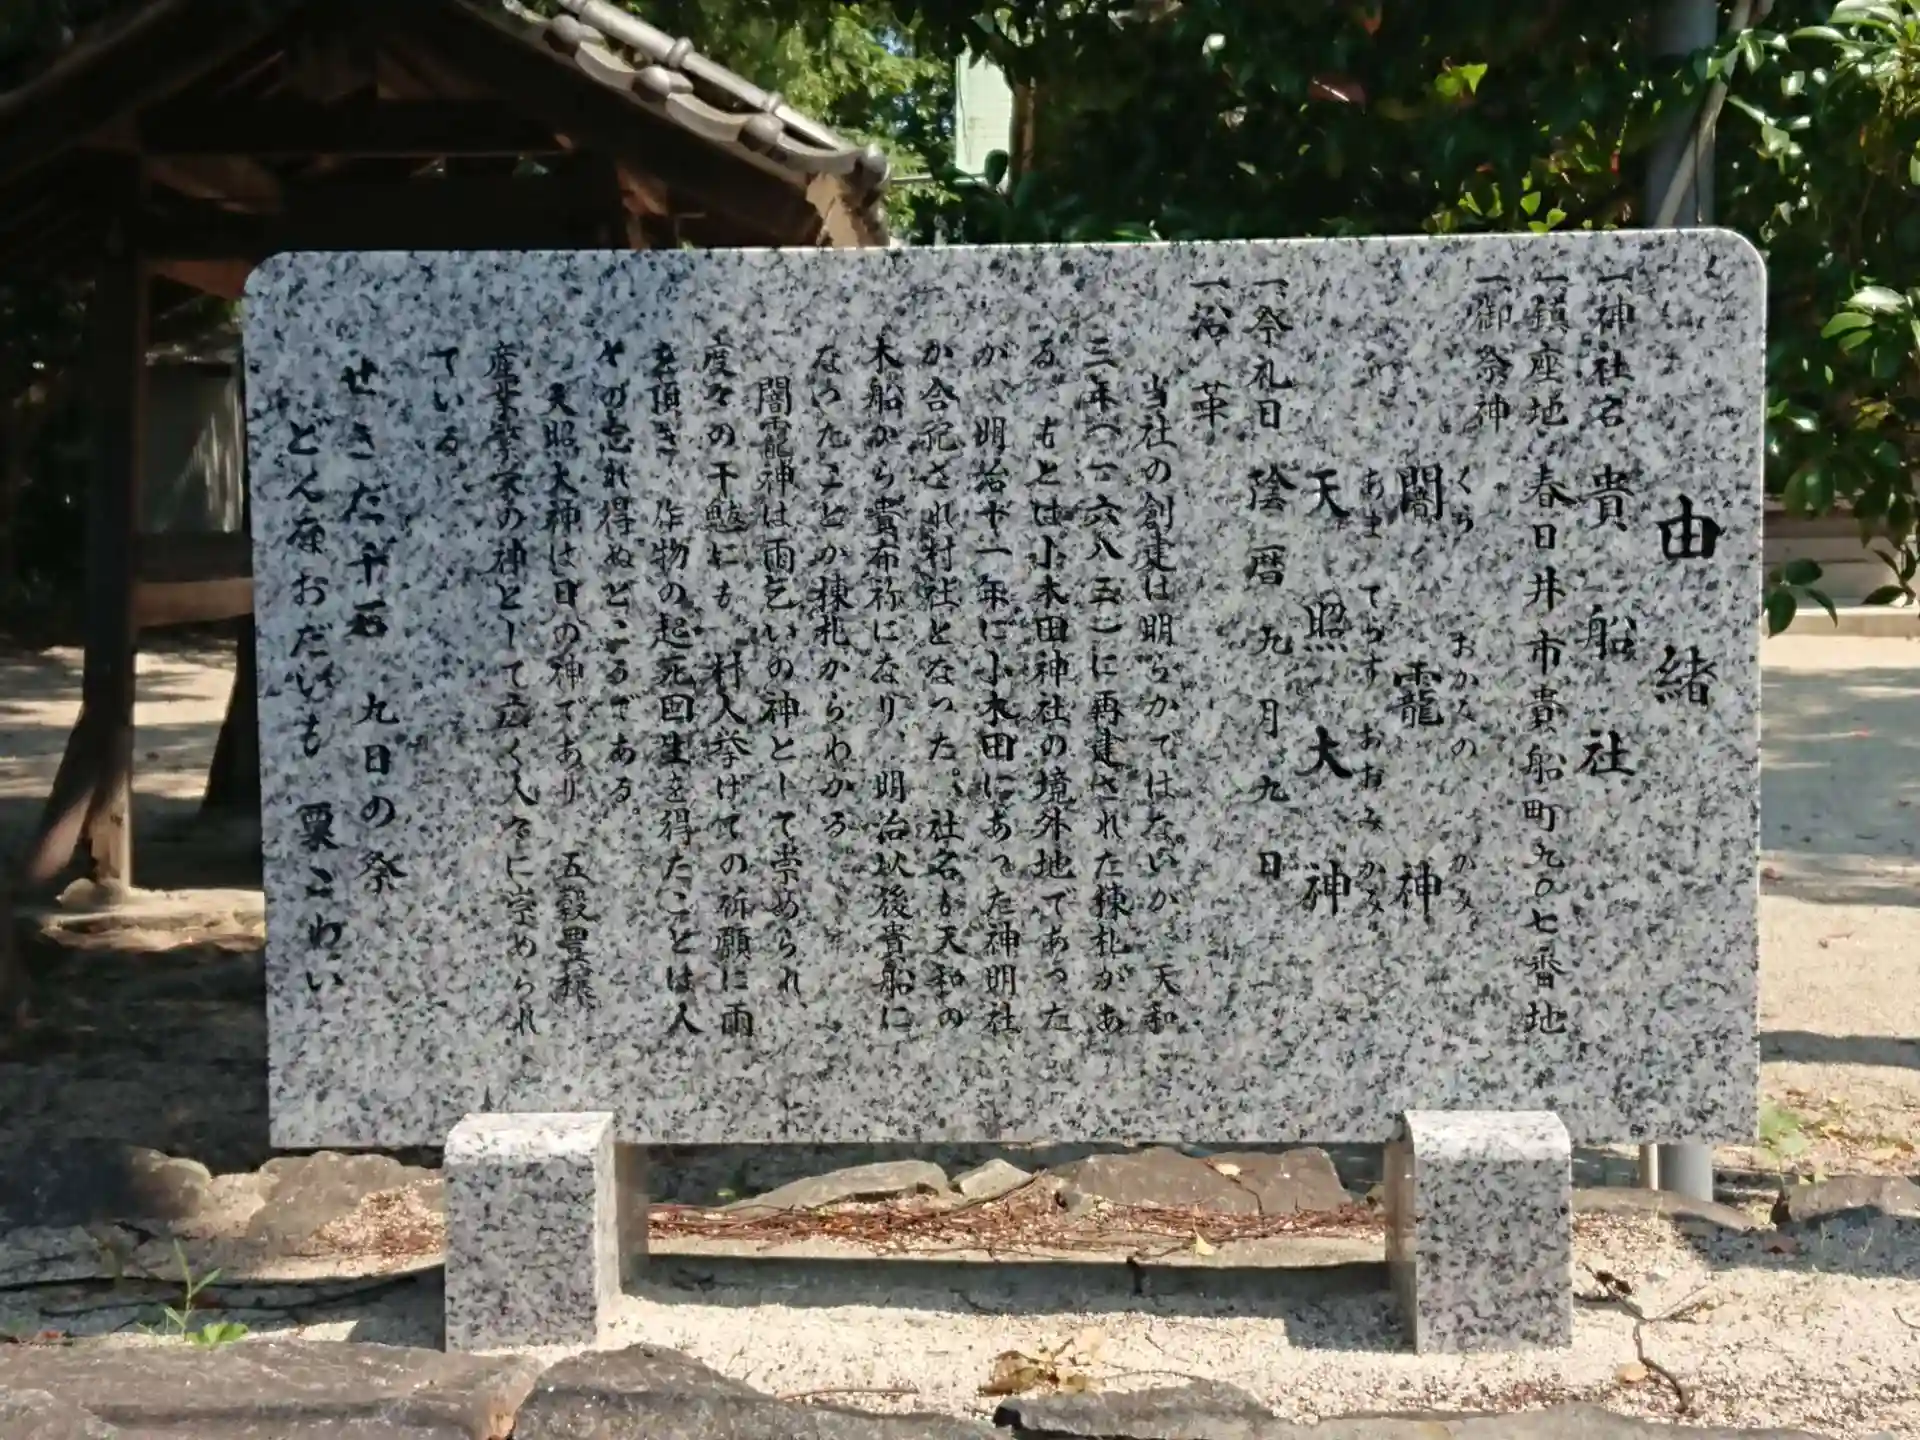 由緒
一神社名 貴船社
一鎮座地 春日井市貴船町九〇七番地
一御祭神
くら おかみの かみ
闇 龗 神
あま てらす おおみ かみ
天 照 大 神
一祭礼日 陰暦九月九日
一沿革
当社の創建は明らかではないが、天和
三年(一六八三)に再建された棟札があ
る。もとは小木田神社の境外地であった
が、明治十一年に小木田にあった神明社
が合祀され村社となった。社名も天和の
木船から貴布祢になり、明治以後貴船に
なったことが棟札からわかる。
闇龗神は雨乞いの神として崇められ、
度々の干魃にも、村人挙げての祈願に雨
を頂き、作物の起死回生を得たことは人
々の忘れ得ぬところである。
天照大神は日の神であり、五穀豊穣、
産業繁栄の神として広く人々に崇められ
ている。
せきだ千石 九日の祭
どん席おだいも 栗こわい